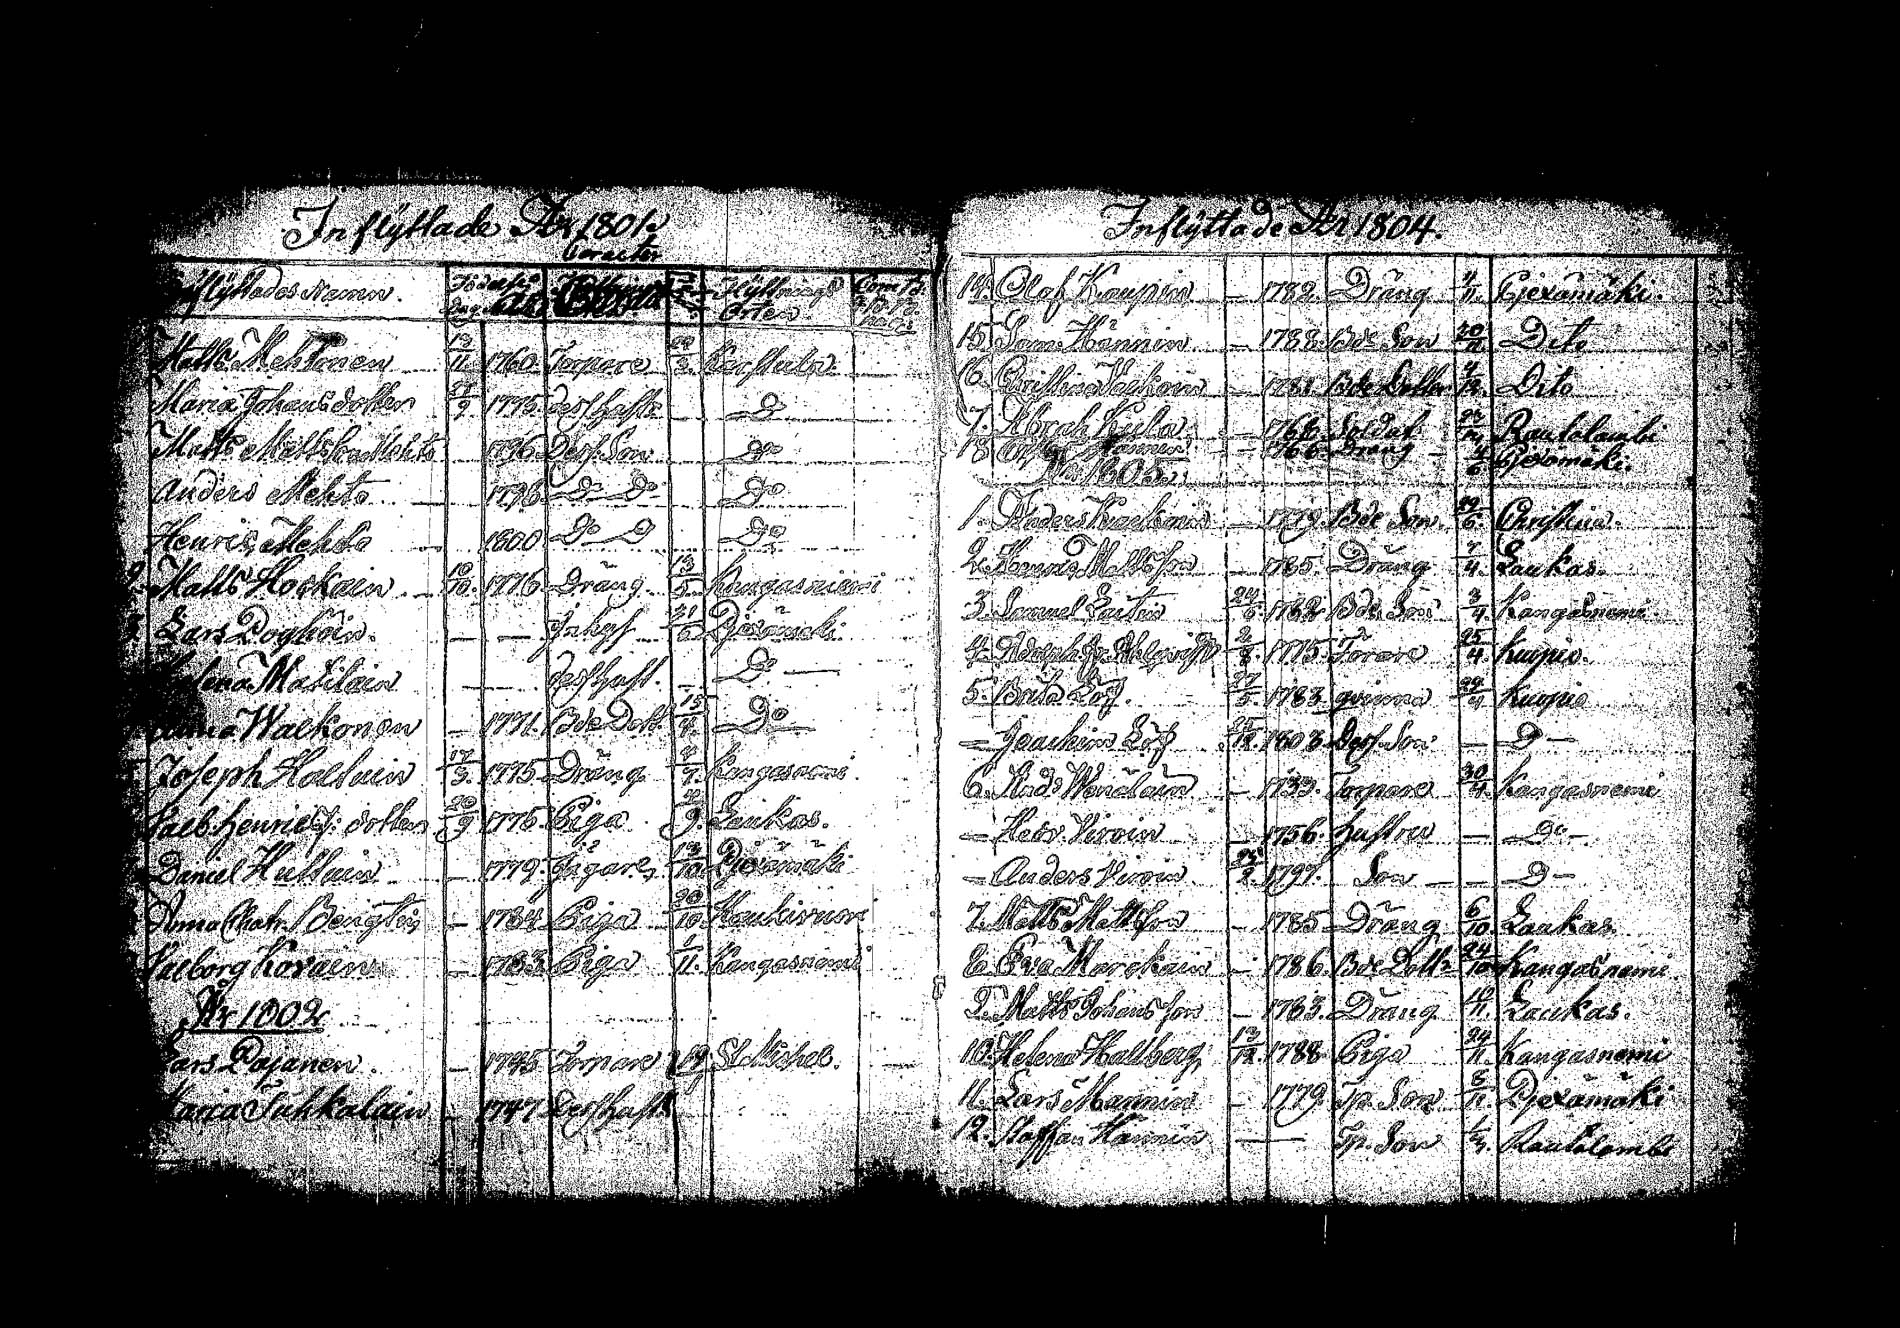 Inflyttade År 1801.
Caracter
Inflyttades Namn. Födelse Dag Flyttnings Orten.
Matts Mehtonen 13/11 1760. Torpare Karstula
Maria Johansdotter 21/9 1775. dess hustr. D°
Matts Mattsson Mehto 1796 Dess Son D°
Anders Mehto 1798 D° D° D°
Henric Mehto 1800 D° D° D°
2. Matts Hockain 10/10. 1776. Dräng 13/5. Kangasniemi
3. Lars Poghoin. — — Inhys 31/6 Pjexämäki
Helena Matilain — — dess hust. — D° —
Anna Walkonen — 1771. Bde Dott 15/4. D° —
Joseph Halluin 17/3. 1775. Dräng 4/7. Kangasnemi.
Valb. Henrics dotter 20/9 1776. Piga 4/9. Laukas.
Daniel Huttuin — 1779. 13/10 Pjexämäki
Anna Chatr. Bengts — 1784 Piga 20/10 Haukivuori
Valborg Kovain — 1783. Piga 1/11. Kangasniemi
År 1802
Lars Pajanen. — 1745 Torpare 19/9 St Michel. —
Maria Tuhkalain — 1747 Dess hustr
Inflyttade År 1804.
14. Olof Kaupin — 1782. Dräng 4/11. Pjexämäki.
15. Sam. Hännin — 1788. Bde Son 20/11 Dito
16. Christina Valkoin — 1781. Bde Dotter Dito
17. Abrah Kula — 1768. Soldat Rautalambi
18. Hannin — 1766. Dräng — 4/6 Pjexämäki.
År 1805.
1. Anders — 1779. Bde Son. 29/6. Christina.
2. Henric Mattsson — 1785. Dräng 7/4. Laukas.
3. Samuel Laitin 24/6. 1782 Bde Son 3/4. Kangasnemi.
4. Adolph Fr. 2/8. 1775. 25/4 Kuopio.
5. Brita Löf. 27/5. 1783. qvinna 29/4 Kuopio
— Joachim Löf 25/12. 1803. Dess Son — D° —
6. And: Wänäläin — 1753. Torpare 30/4. Kangasnemi
— Hedv. Viroin — 1756. hustru — D° —
— Anders Viroin 1797. Son — — D° —
7. Matts Mattsson — 1785. Dräng 6/10. Laukas.
8. Eva Marckain — 1786. Bde Dott: 24/10 Kangasnemi
9. Matts Johansson — 1783. Dräng 10/11. Laukas.
10. Helena Hallberg 13/12. 1788 Piga 24/11. Kangasnemi
11. Lars Mannin — 1779. Tp. Son 8/11. Pjexämäki
12. Staffan Hännin — Tp. Son Rautalambi